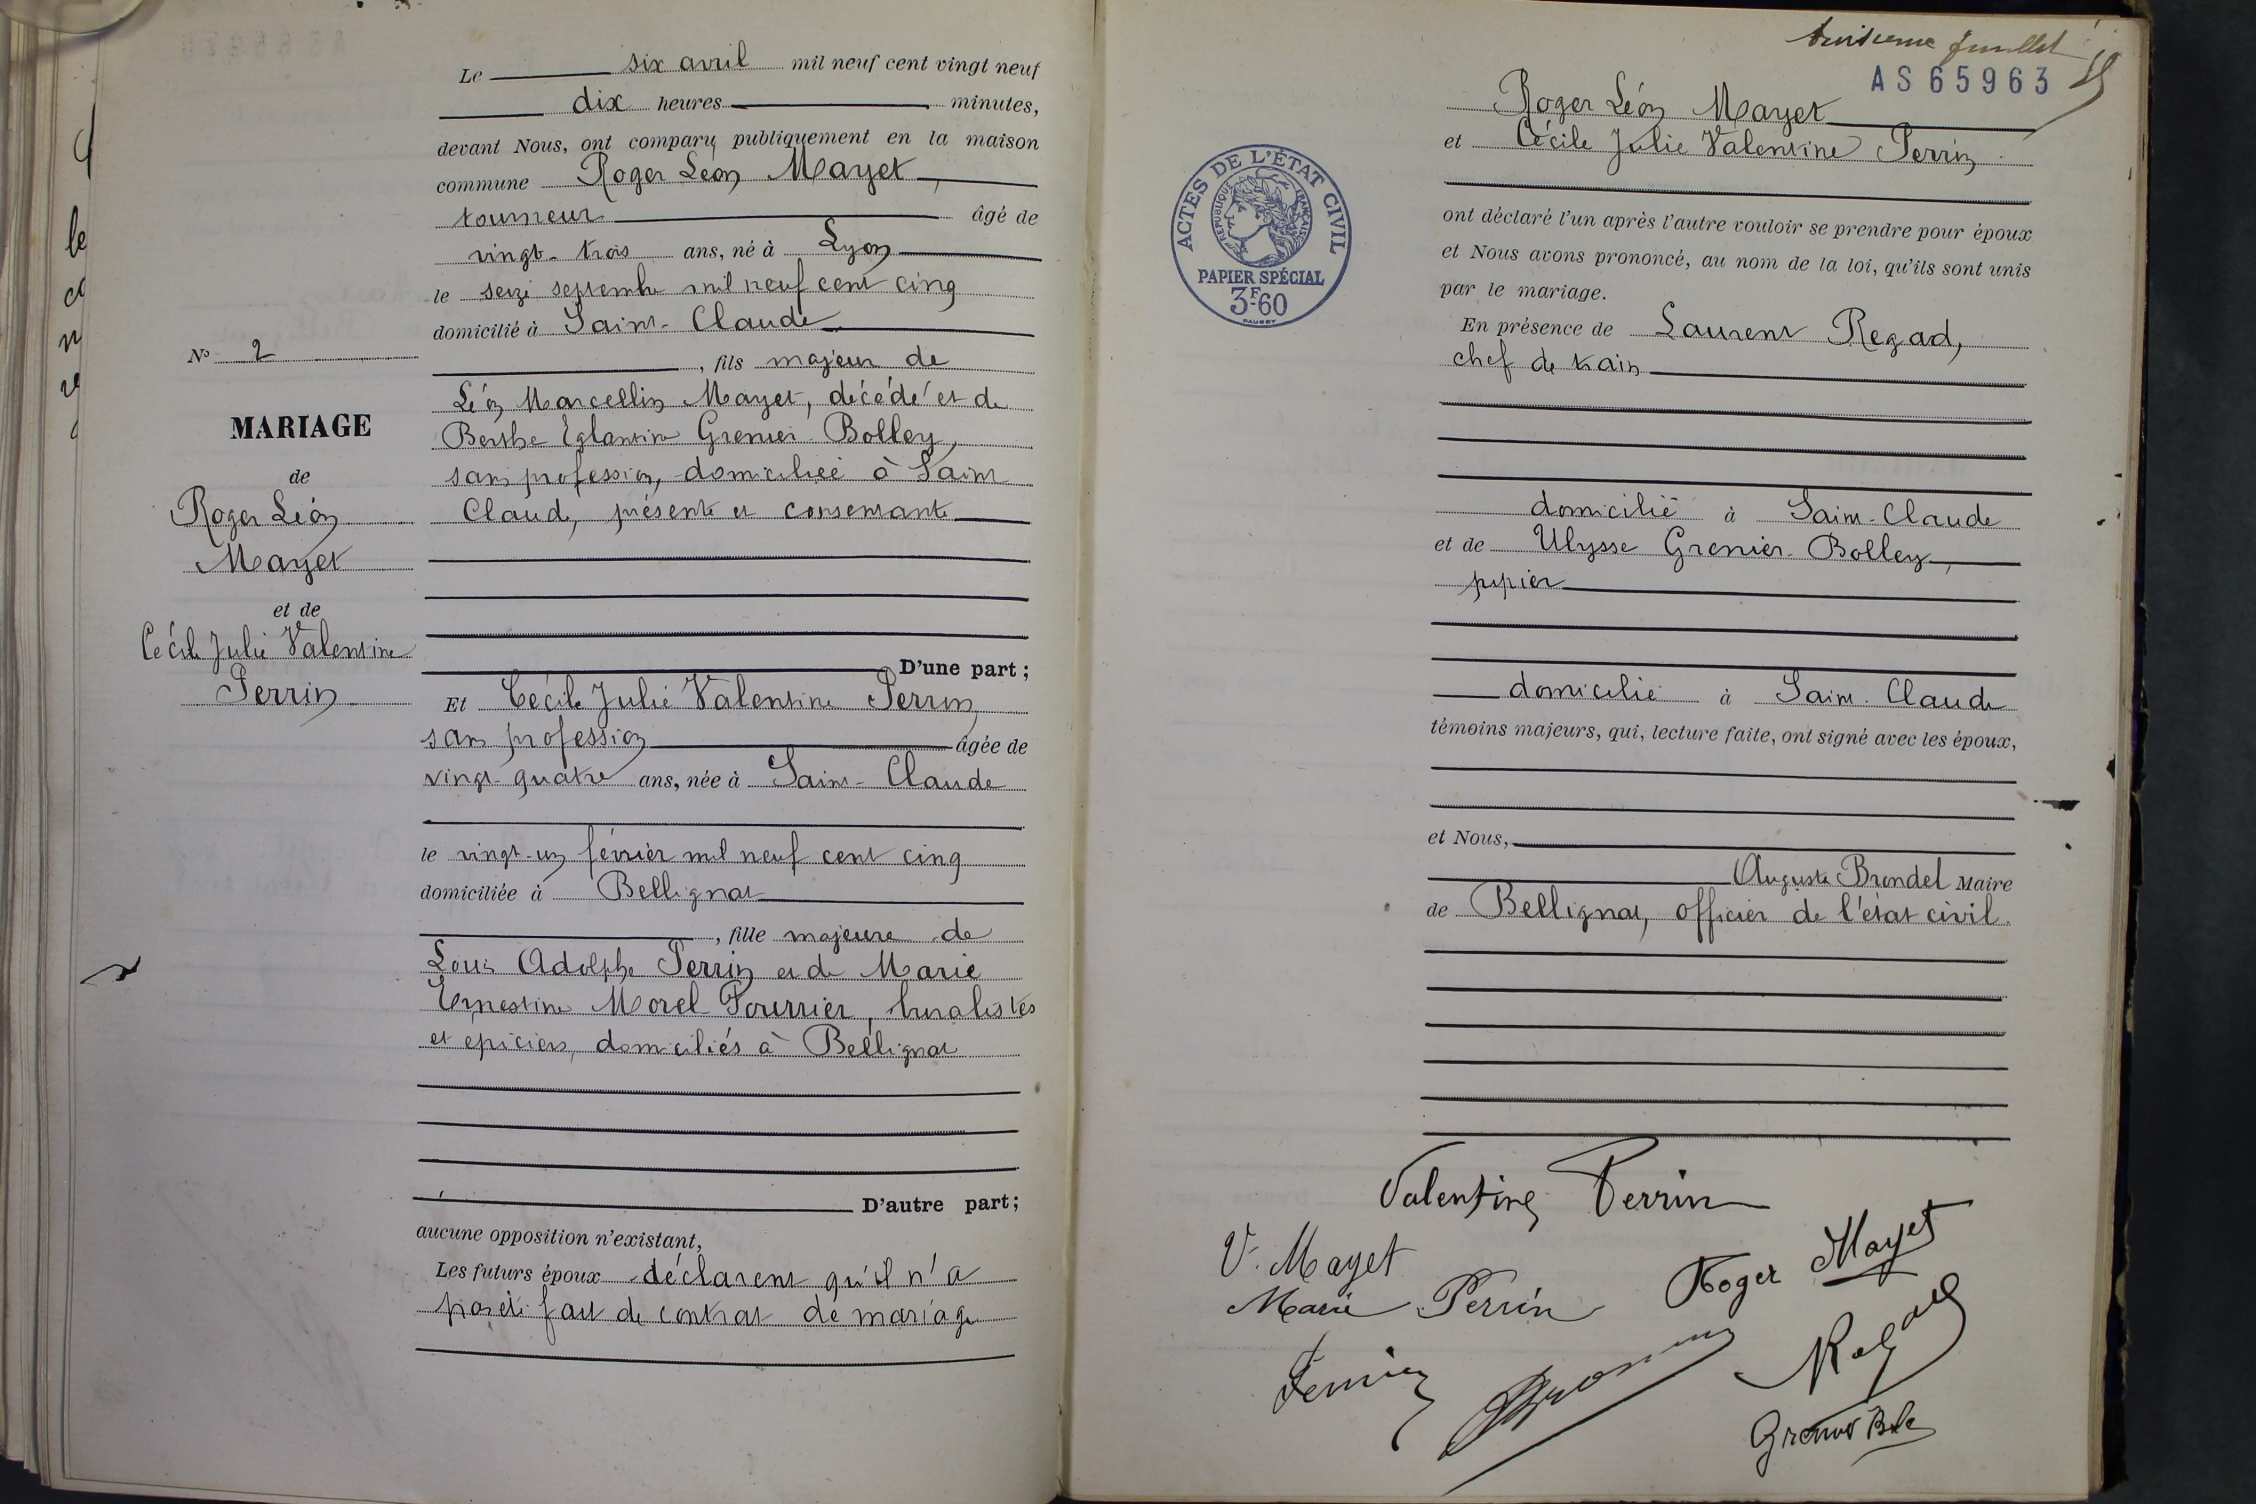 Le six avril mil neuf cent vingt neuf
dix heures minutes,
devant Nous, ont comparu publiquement en la maison
commune Roger Léon Mayet,
tourneur âgé de
vingt-trois ans, né à Lyon
le seize septembre mil neuf cent cinq
domicilié à Saint-Claude
, fils majeur de
Léon Marcellin Mayet, décédé et de
Berthe Eglantine Grenier-Bolley,
sans profession, domiciliée à Saint
Claude, présente et consentante
D'une part;
Et Cécile Julie Valentine Perrin
sans profession âgée de
vingt-quatre ans, née à Saint-Claude
le vingt-un février mil neuf cent cinq
domiciliée à Bellignat
, fille majeure de
Louis Adolphe Perrin et de Marie
Ernestine Morel Fourrier, buralistes
et épiciers, domiciliés à Bellignat
D'autre part;
aucune opposition n'existant,
Les futurs époux déclarent qu'il n'a
pas été fait de contrat de mariage
No 2
MARIAGE
de
Roger Léon
Mayet
et de
Cécile Julie Valentine
Perrin
feuillet
AS65963
Roger Léon Mayet
et Cécile Julie Valentine Perrin
ont déclaré l'un après l'autre vouloir se prendre pour époux
et Nous avons prononcé, au nom de la loi, qu'ils sont unis
par le mariage.
En présence de Laurent Regad,
chef de train
domicilié à Saint-Claude
et de Ulysse Grenier-Bolley,
pipier
domicilié à Saint-Claude
témoins majeurs, qui, lecture faite, ont signé avec les époux,
et Nous,
Auguste Brondel Maire
de Bellignat, officier de l'état civil.
ACTES DE L'ÉTAT CIVIL
RÉPUBLIQUE FRANÇAISE
PAPIER SPÉCIAL
3F60
Valentine Perrin
V. Mayet
Roger Mayet
Marie Perrin
Perrin
Regad